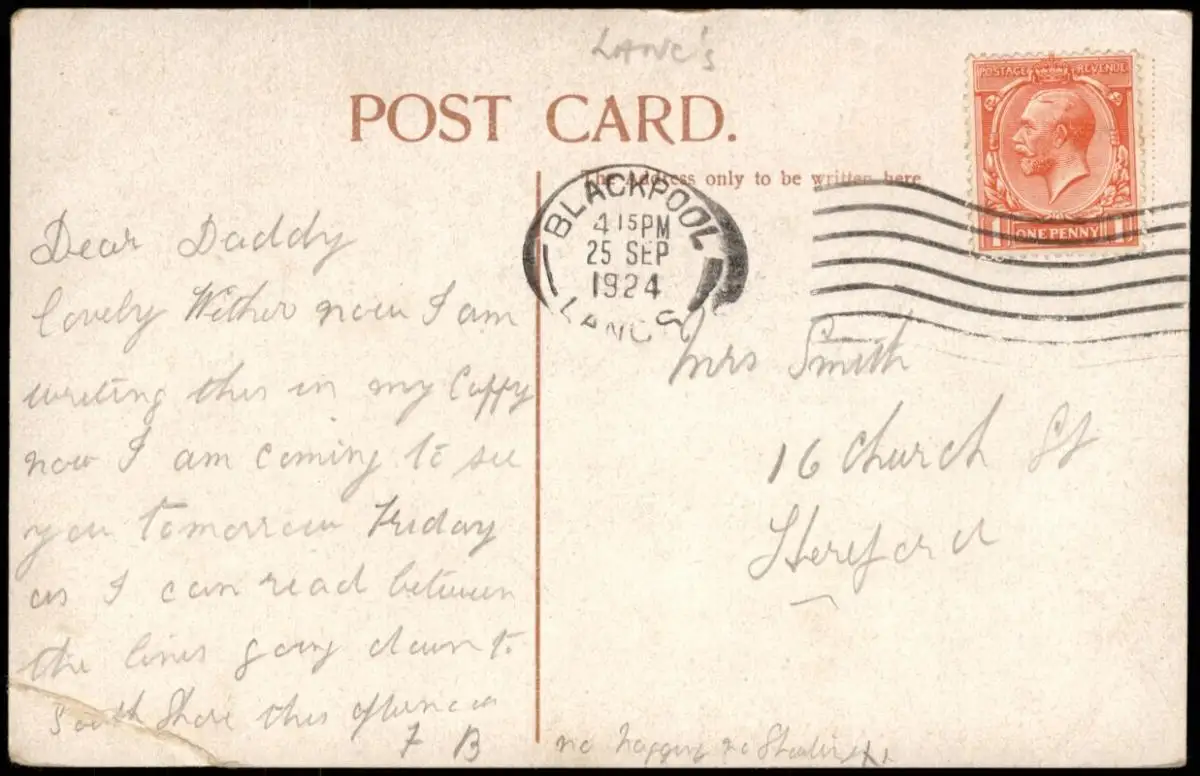 LANC's
POST CARD.
The Address only to be written here
POSTAGE REVENUE
1 ONE PENNY 1
BLACKPOOL
4 15 PM
25 SEP
1924
LANCS
Dear Daddy
lovely Wether now I am
writing this in my
now I am coming to see
you tomorrow Friday
as I can read between
the lines going down to
South Shore this
F B
Mrs Smith
16 Church St
Hereford
no no